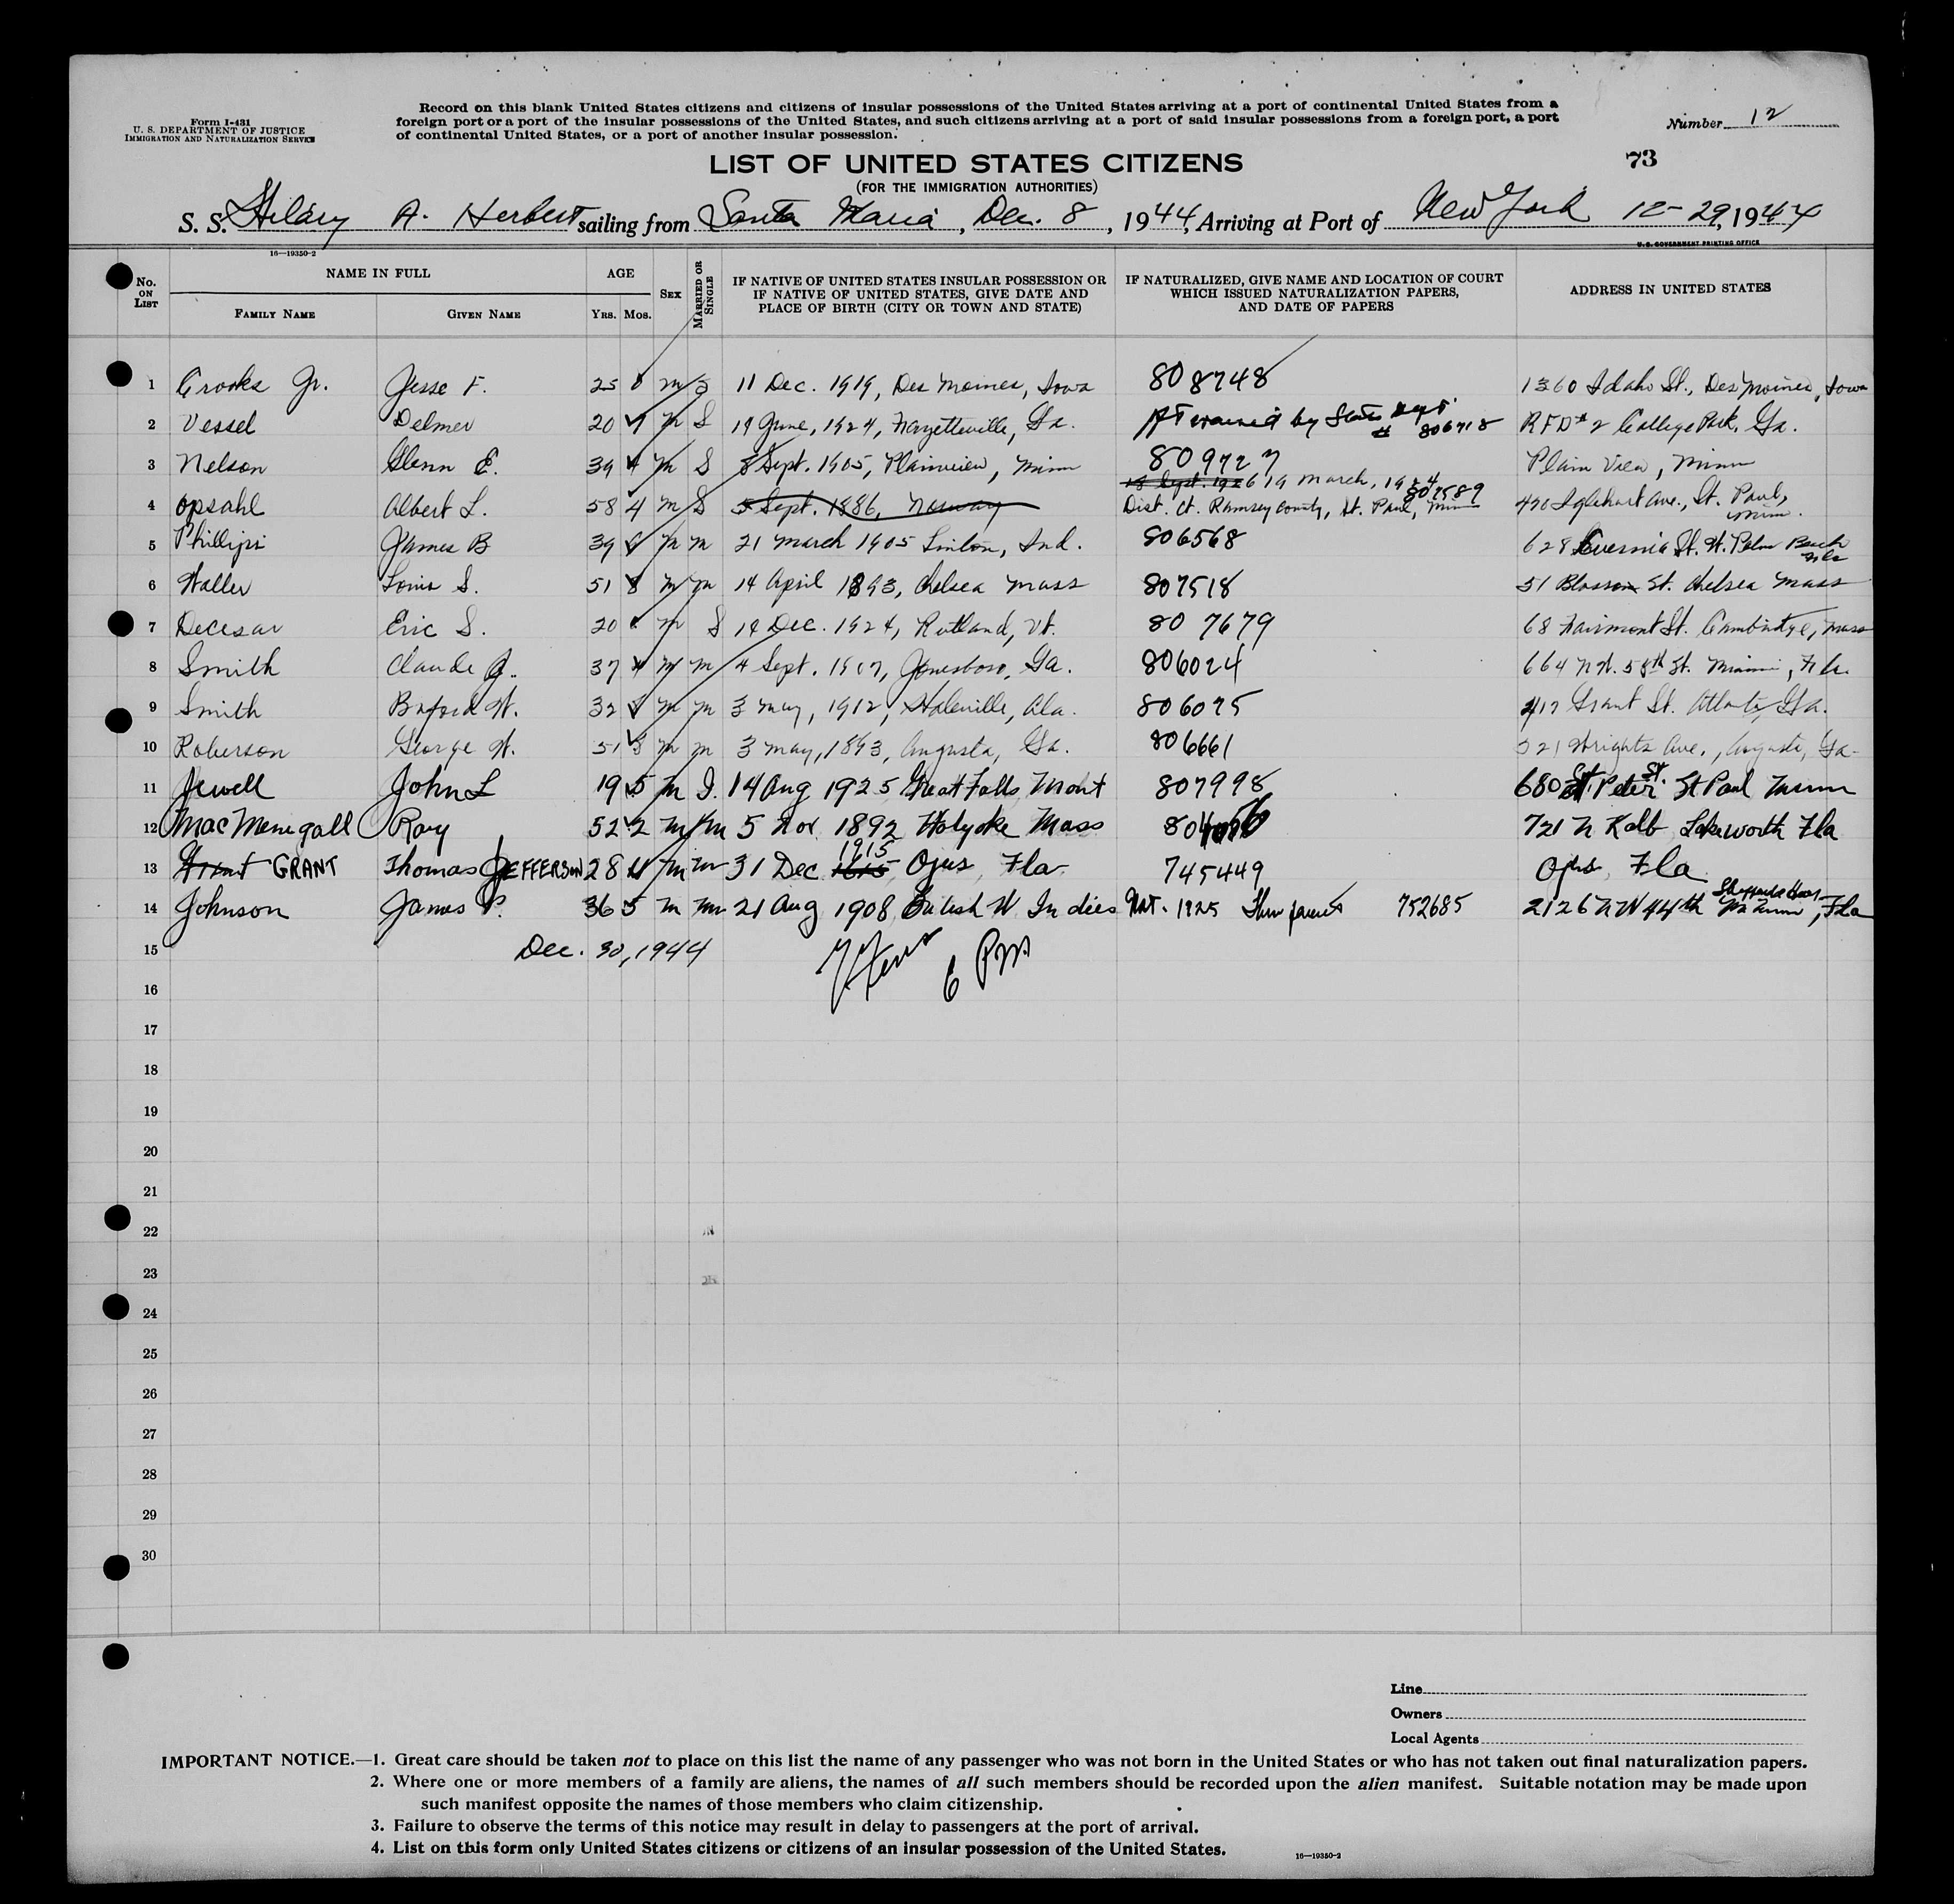 Form I-431
U. S. DEPARTMENT OF JUSTICE
IMMIGRATION AND NATURALIZATION SERVICE
Record on this blank United States citizens and citizens of insular possessions of the United States arriving at a port of continental United States from a
foreign port or a port of the insular possessions of the United States, and such citizens arriving at a port of said insular possessions from a foreign port, a port
of continental United States, or a port of another insular possession.
Number 12
LIST OF UNITED STATES CITIZENS
73
(FOR THE IMMIGRATION AUTHORITIES)
S. S. Hilary A. Herbert sailing from Santa Maria, Dec. 8, 1944, Arriving at Port of New York 12-29, 1944
16—19350-2
U. S. GOVERNMENT PRINTING OFFICE
No. ON LIST
NAME IN FULL
FAMILY NAME GIVEN NAME
AGE
YRS. MOS.
SEX
MARRIED OR SINGLE
IF NATIVE OF UNITED STATES INSULAR POSSESSION OR
IF NATIVE OF UNITED STATES, GIVE DATE AND
PLACE OF BIRTH (CITY OR TOWN AND STATE)
IF NATURALIZED, GIVE NAME AND LOCATION OF COURT
WHICH ISSUED NATURALIZATION PAPERS,
AND DATE OF PAPERS
ADDRESS IN UNITED STATES
1 Crooks Jr. Jesse F. 25 0 m S 11 Dec. 1919, Des Moines, Iowa 808748 1360 Idaho St., Des Moines, Iowa
2 Vessel Delmer 20 m S 19 June, 1924, Fayetteville, Ga. by State Dept. # 806718 RFD # 2 College Park, Ga.
3 Nelson Glenn E. 39 m S 8 Sept. 1905, Plainview, Minn 809727 Plain View, Minn
4 Opsahl Albert L. 58 4 m S 5 Sept. 1886, Norway 18 Sept. 1926 19 March, 1924 807589
Dist. Ct. Ramsey County, St. Paul, Minn 470 Iglehart Ave., St. Paul, Minn.
5 Phillips James B 39 m m 21 March 1905 Linton, Ind. 806568 628 St. W. Palm Beach Fla
6 Waller Louis S. 51 8 m m 14 April 1893, Chelsea Mass 807518 51 Blossom St. Chelsea Mass
7 Decesar Eric S. 20 m S 19 Dec. 1924, Rutland, Vt. 807679 68 Fairmont St. Cambridge, Mass
8 Smith Claude J. 37 m m 4 Sept. 1907, Jonesboro, Ga. 806024 664 N.W. 58th St. Miami, Fla.
9 Smith Buford W. 32 m m 3 May, 1912, Haleville, Ala. 806075 417 Grant St. Atlanta, Ga.
10 Roberson George W. 51 m m 3 May, 1893, Augusta, Ga. 806661 321 Wrights Ave., Augusta, Ga.
11 Jewell John L 19 5 m S. 14 Aug 1925 Great Falls Mont 807998 680 St. Peter St. St Paul Minn
12 MacMenigall Ray 52 2 m m 5 Nov 1892 Holyoke Mass 721 N Kalb Lakeworth Fla
13 GRANT Thomas JEFFERSON 28 m m 31 Dec 1915 Ojus, Fla 745449 Ojus, Fla
14 Johnson James P. 36 5 m m 21 Aug 1908 British W Indies Nat. 1925 Thru parents 752685 2126 N W 44th Miami, Fla
15 Dec. 30, 1944
6 PM
16
17
18
19
20
21
22
23
24
25
26
27
28
29
30
Line
Owners
Local Agents
IMPORTANT NOTICE.—1. Great care should be taken not to place on this list the name of any passenger who was not born in the United States or who has not taken out final naturalization papers.
2. Where one or more members of a family are aliens, the names of all such members should be recorded upon the alien manifest. Suitable notation may be made upon
such manifest opposite the names of those members who claim citizenship.
3. Failure to observe the terms of this notice may result in delay to passengers at the port of arrival.
4. List on this form only United States citizens or citizens of an insular possession of the United States.
16—19350-2